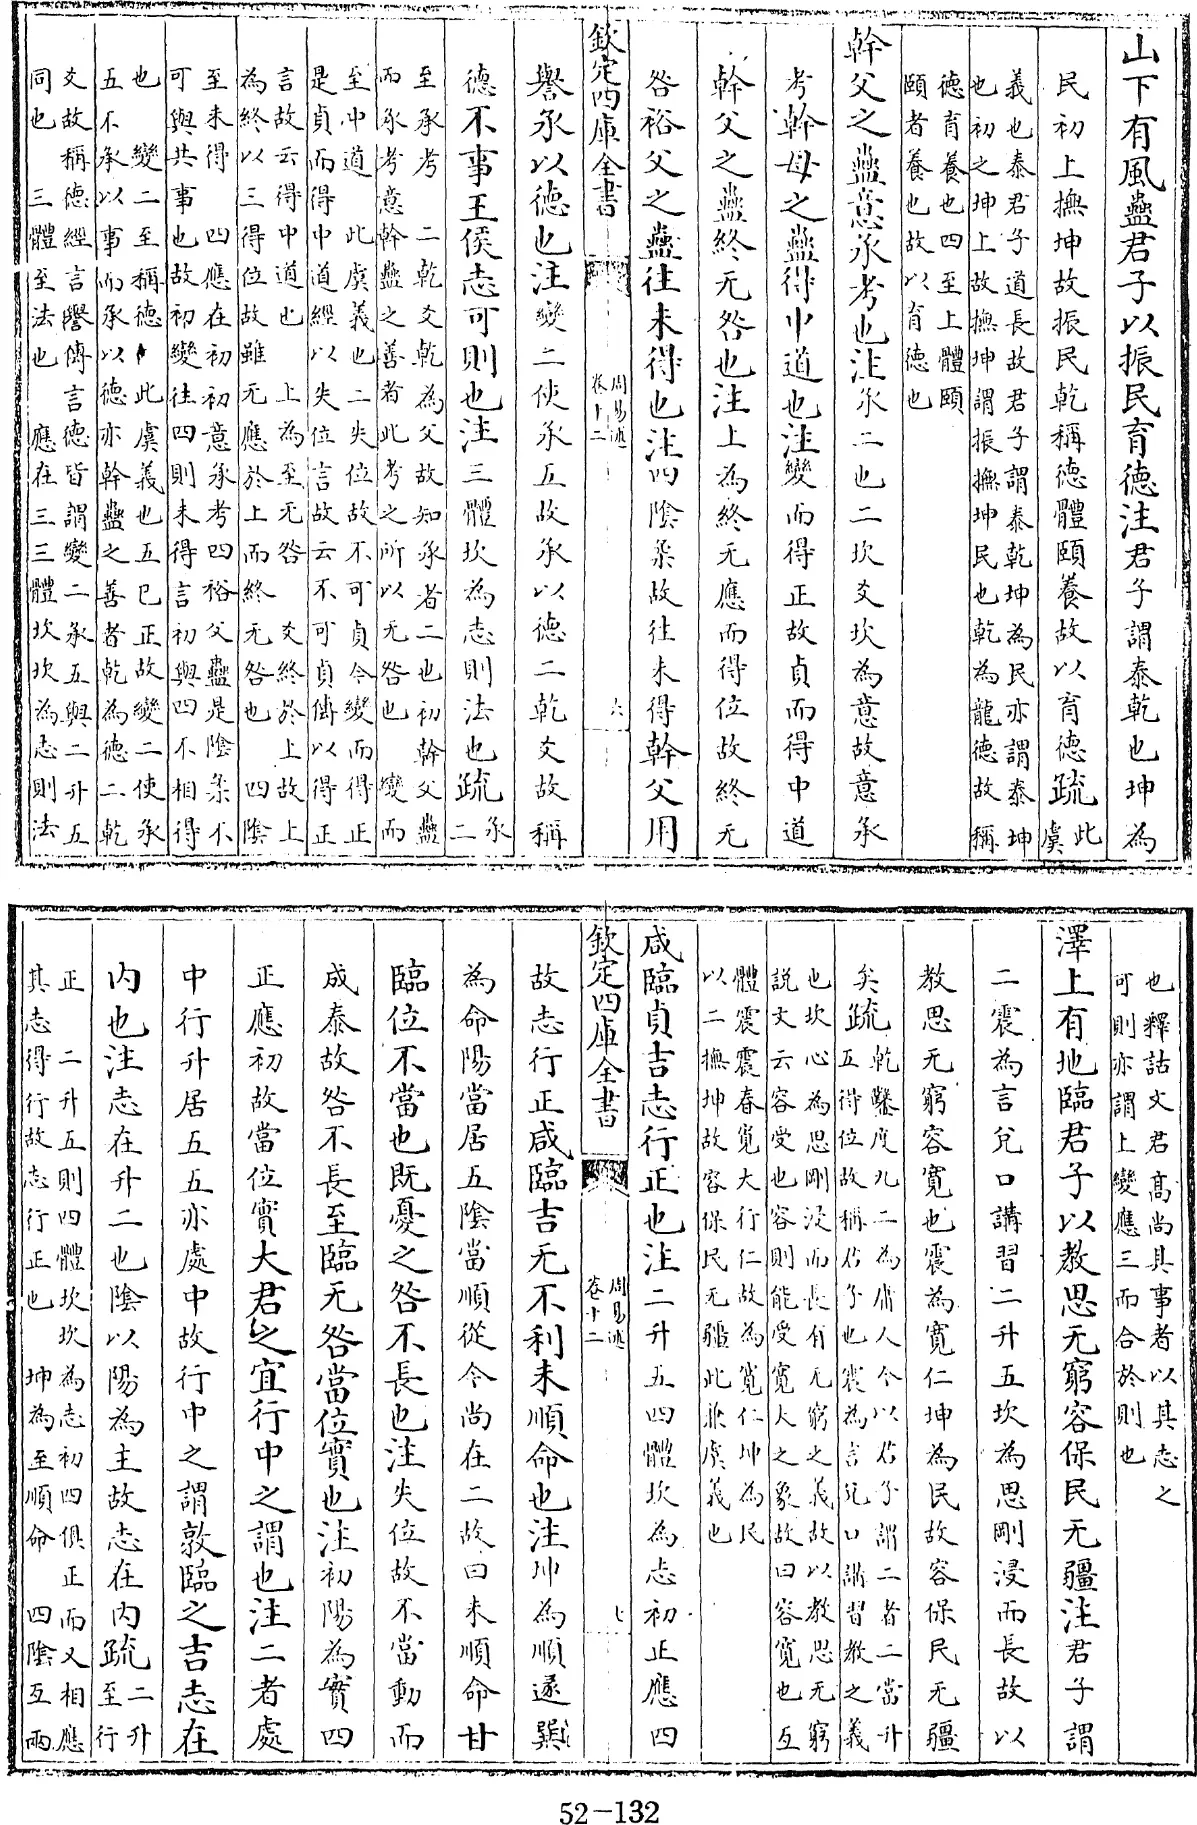 山下有風蠱君子以振民育德注君子謂泰乾也坤為
民初上撫坤故振民乾稱德體頤養故以育德疏此
虞
義也泰君子道長故君子謂泰乾坤為民亦謂泰坤
也初之坤上故撫坤謂振撫坤民也乾為龍德故稱
德育養也四至上體頤
頤者養也故以育德也
幹父之蠱意承考也注承二也二坎爻坎為意故意承
考幹母之蠱得中道也注變而得正故貞而得中道
幹父之蠱終无咎也注上為終无應而得位故終无
咎裕父之蠱往未得也注四陰柔故往未得幹父用
欽定四庫全書
周易述
卷十二
六
譽承以德也注變二使承五故承以德二乾爻故稱
德不事王侯志可則也注三體坎為志則法也疏承
二
至承考 二乾爻乾為父故知承者二也初幹父蠱
而承考意幹蠱之善者此考之所以无咎也 變而
至中道 此虞義也二失位故不可貞今變而得正
是貞而得中道經以失位言故云不可貞傳以得正
言故云得中道也 上為至无咎 爻終於上故上
為終以三得位故雖无應於上而終无咎也 四陰
至未得 四應在初初意承考四裕父蠱是陰柔不
可與共事也故初變往四則未得言初與四不相得
也 變二至稱德 此虞義也五已正故變二使承
五不承以事而承以德亦幹蠱之善者乾為德二乾
爻故稱德經言譽傳言德皆謂變二承五與二升五
同也 三體至法也 應在三三體坎坎為志則法
也釋詁文君髙尚其事者以其志之
可則亦謂上變應三而合於則也
澤上有地臨君子以教思无窮容保民无疆注君子謂
二震為言兌口講習二升五坎為思剛浸而長故以
教思无窮容寬也震為寬仁坤為民故容保民无疆
矣疏乾鑿度九二為庸人今以君子謂二者二當升
五得位故稱君子也震為言兌口講習教之義
也坎心為思剛浸而長有无窮之義故以教思无窮
説文云容受也容則能受寛大之象故曰容寛也互
體震震春寛大行仁故為寛仁坤為民
以二撫坤故容保民无疆此兼虞義也
咸臨貞吉志行正也注二升五四體坎為志初正應四
欽定四庫全書
周易述
卷十二
七
故志行正咸臨吉无不利未順命也注坤為順遂巽
為命陽當居五陰當順從今尚在二故曰未順命甘
臨位不當也既憂之咎不長也注失位故不當動而
成泰故咎不長至臨无咎當位實也注初陽為實四
正應初故當位實大君之宜行中之謂也注二者處
中行升居五五亦處中故行中之謂敦臨之吉志在
内也注志在升二也陰以陽為主故志在内疏二升
至行
正 二升五則四體坎坎為志初四俱正而又相應
其志得行故志行正也 坤為至順命 四陰互兩
52-132